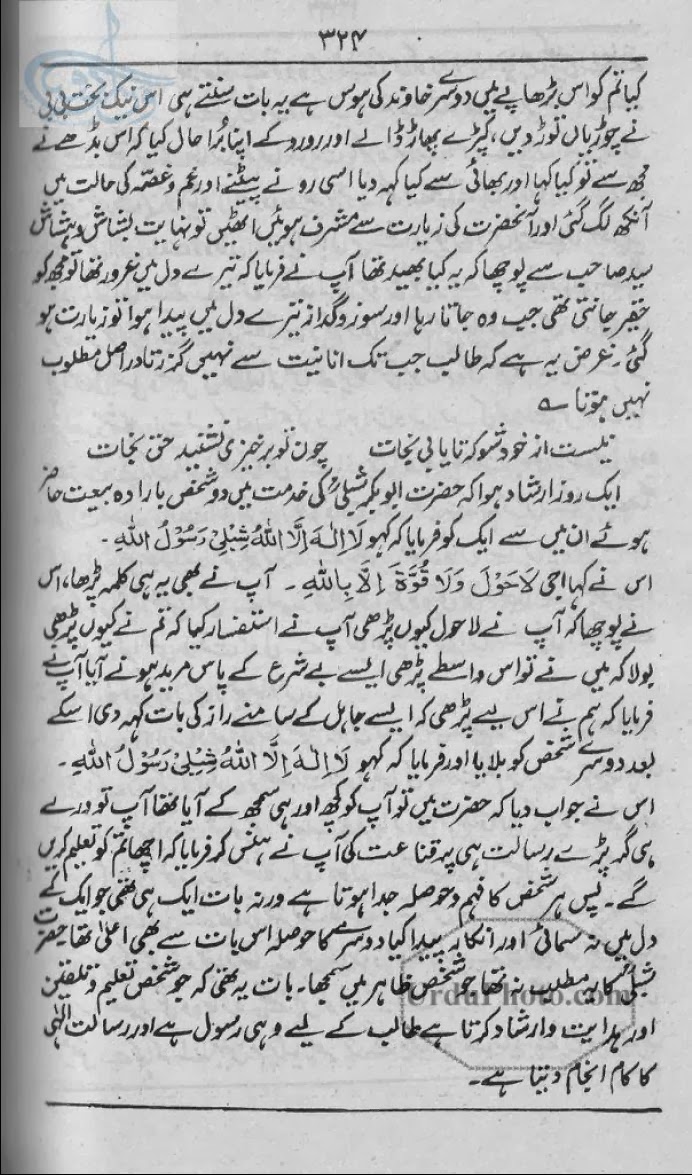 ۳۲۴
کیا تم کو اس بڑھاپے میں دوسرے خاوند کی ہوس ہے یہ بات سنتے ہی اس نیک بخت بی بی
نے چوڑیاں توڑ دیں، کپڑے پھاڑ ڈالے اور رو رو کے اپنا بُرا حال کیا کہ اس بڈھے نے
مجھ سے تو کیا کہا اور بھائی سے کیا کہہ دیا اسی رونے پیٹنے اور غم و غصہ کی حالت میں
آنکھ لگ گئی اور آنحضرت کی زیارت سے مشرف ہوئیں اٹھیں تو نہایت بشاش و ہشاش
سید صاحب سے پوچھا کہ یہ کیا بھید تھا آپ نے فرمایا کہ تیرے دل میں غرور تھا تو مجھ کو
حقیر جانتی تھی جب وہ جاتا رہا اور سوز و گداز تیرے دل میں پیدا ہوا تو زیارت ہو
گئی۔ غرض یہ ہے کہ طالب جب تک انانیت سے نہیں گزرتا در اصل مطلوب
نہیں ہوتا ؎
نیست از خود شو کہ تا یابی نجات چون تو برخیزی نشیند حق بجات
ایک روز ارشاد ہوا کہ حضرت ابوبکر شبلیؒ کی خدمت میں دو شخص بارادہ بیعت حاضر
ہوئے ان میں سے ایک کو فرمایا کہ کہو لَا اِلٰہَ اِلَّا اللّٰہُ شِبْلِیْ رَسُوْلُ اللّٰہِ۔
اس نے کہا اجی لَاحَوْلَ وَلَا قُوَّۃَ اِلَّا بِاللّٰہِ۔ آپ نے بھی یہ ہی کلمہ پڑھا، اس
نے پوچھا کہ آپ نے لاحول کیوں پڑھی آپ نے استفسار کیا کہ تم نے کیوں پڑھی
بولا کہ میں نے تو اس واسطے پڑھی ایسے بے شرع کے پاس مرید ہونے آیا آپ نے
فرمایا کہ ہم نے اس لیے پڑھی کہ ایسے جاہل کے سامنے راز کی بات کہہ دی اسکے
بعد دوسرے شخص کو بلایا اور فرمایا کہ کہو لَا اِلٰہَ اِلَّا اللّٰہُ شِبْلِیْ رَسُوْلُ اللّٰہِ۔
اس نے جواب دیا کہ حضرت میں تو آپ کو کچھ اور ہی سمجھ کے آیا تھا آپ تو ورے
ہی گر پڑے رسالت ہی پر قناعت کی آپ نے ہنس کر فرمایا کہ اچھا تم کو تعلیم کریں
گے۔ پس ہر شخص کا فہم و حوصلہ جدا ہوتا ہے ورنہ بات ایک ہی تھی جو ایک کے
دل میں نہ سمائی اور انکار پیدا کیا دوسرے کا حوصلہ اس بات سے بھی اعلیٰ تھا حضرت
شبلیؒ کا یہ مطلب نہ تھا جو شخص ظاہر میں سمجھا۔ بات یہ تھی کہ جو شخص تعلیم و تلقین
اور ہدایت و ارشاد کرتا ہے طالب کے لیے وہی رسول ہے اور رسالت الٰہی
کا کام انجام دیتا ہے۔
UrduPhoto.com